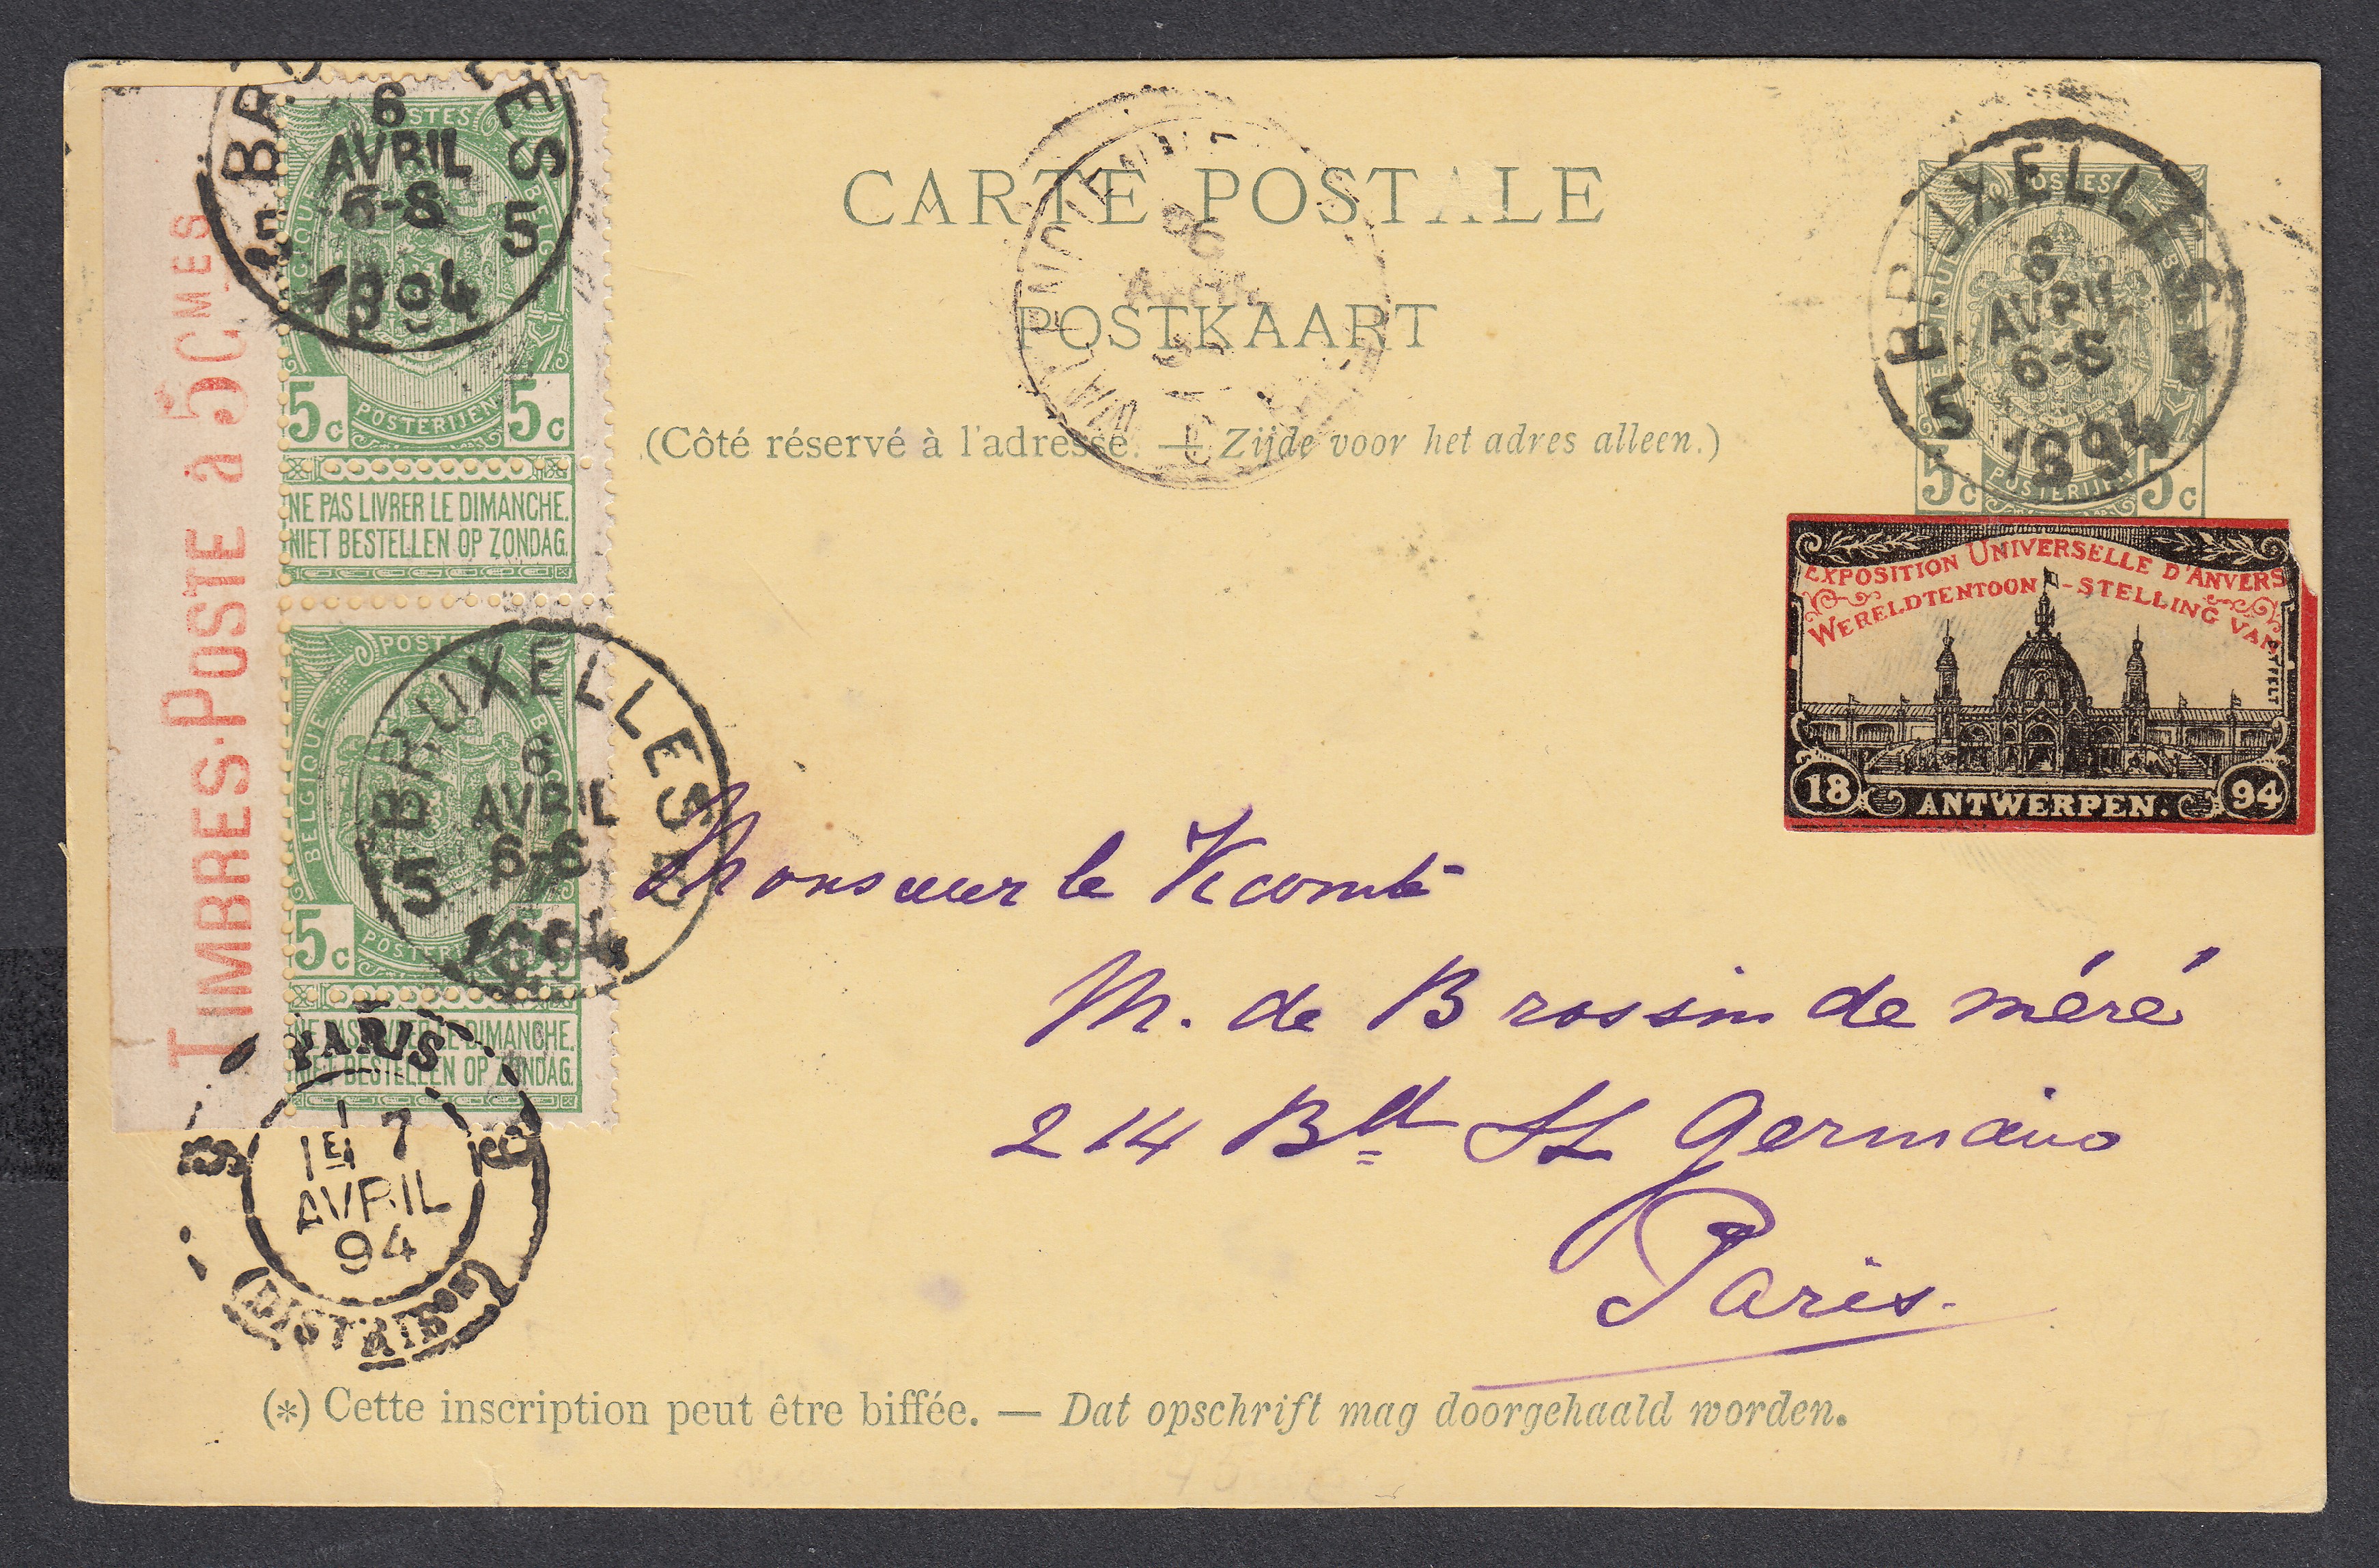 TIMBRES-POSTE à 5 CMES
BRUXELLES
6
AVRIL
6-8
1894
5 5
POSTES
BELGIQUE
5c 5c
POSTERIJEN
NE PAS LIVRER LE DIMANCHE.
NIET BESTELLEN OP ZONDAG.
BRUXELLES
6
AVRIL
1894
5
POSTES
BELGIQUE
5c
NE PAS LIVRER LE DIMANCHE.
NIET BESTELLEN OP ZONDAG.
PARIS
1E 7
AVRIL
94
(DISTRIBON)
CARTE POSTALE
POSTKAART
(Côté réservé à l'adresse. — Zijde voor het adres alleen.)
BRUXELLES
6
AVRIL
6-8
1894
5
POSTES
5c POSTERIJEN 5c
EXPOSITION UNIVERSELLE D'ANVERS
WERELDTENTOON-STELLING VAN
18 ANTWERPEN. 94
Monsieur le Vicomte
M. de Brossin de méré
214 Bd St Germain
Paris.
(*) Cette inscription peut être biffée. — Dat opschrift mag doorgehaald worden.